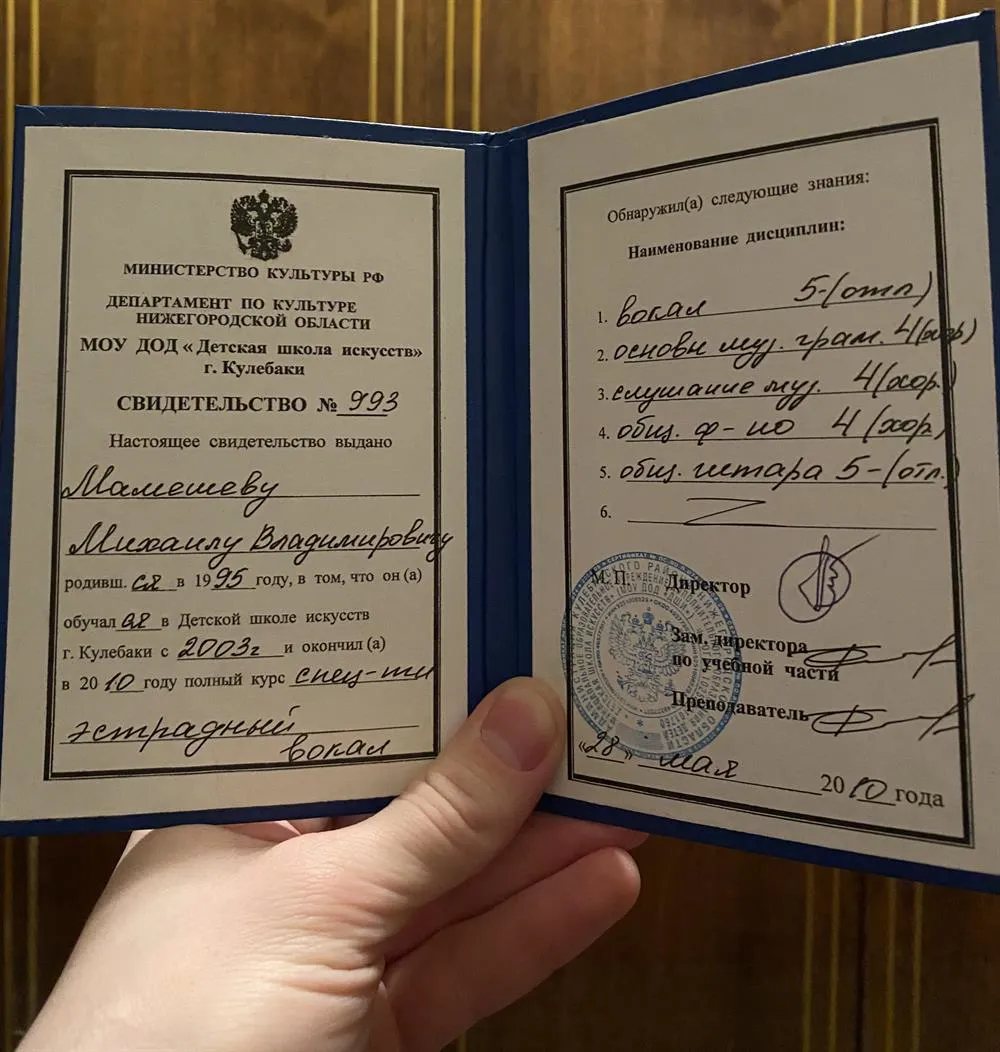 МИНИСТЕРСТВО КУЛЬТУРЫ РФ
ДЕПАРТАМЕНТ ПО КУЛЬТУРЕ
НИЖЕГОРОДСКОЙ ОБЛАСТИ
МОУ ДОД «Детская школа искусств»
г. Кулебаки
СВИДЕТЕЛЬСТВО № 993
Настоящее свидетельство выдано
Мамешеву
Михаилу Владимировичу
родивш. ся в 1995 году, в том, что он (а)
обучался в Детской школе искусств
г. Кулебаки с 2003г и окончил (а)
в 2010 году полный курс спец-ти
эстрадный
вокал
Обнаружил(а) следующие знания:
Наименование дисциплин:
1. вокал 5-(отл)
2. основы муз. грам. 4(хор)
3. слушание муз. 4(хор.)
4. общ. ф-но 4 (хор.)
5. общ. гитара 5-(отл.
6.
М. П. Директор
Зам. директора
по учебной части
Преподаватель
«28» мая 2010 года